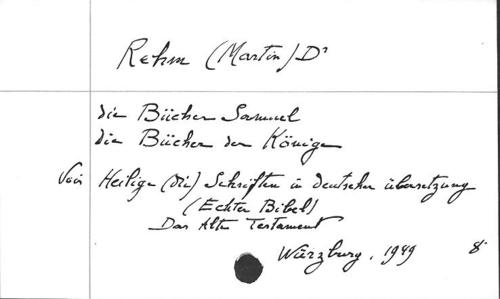 Rehm (Martin) Dr
die Bücher Samuel
die Bücher der Könige
Voir Heilige (Die) Schriften in deutscher übersetzung
(Echter Bibel)
Das Alte Testament
Würzburg, 1949 8°